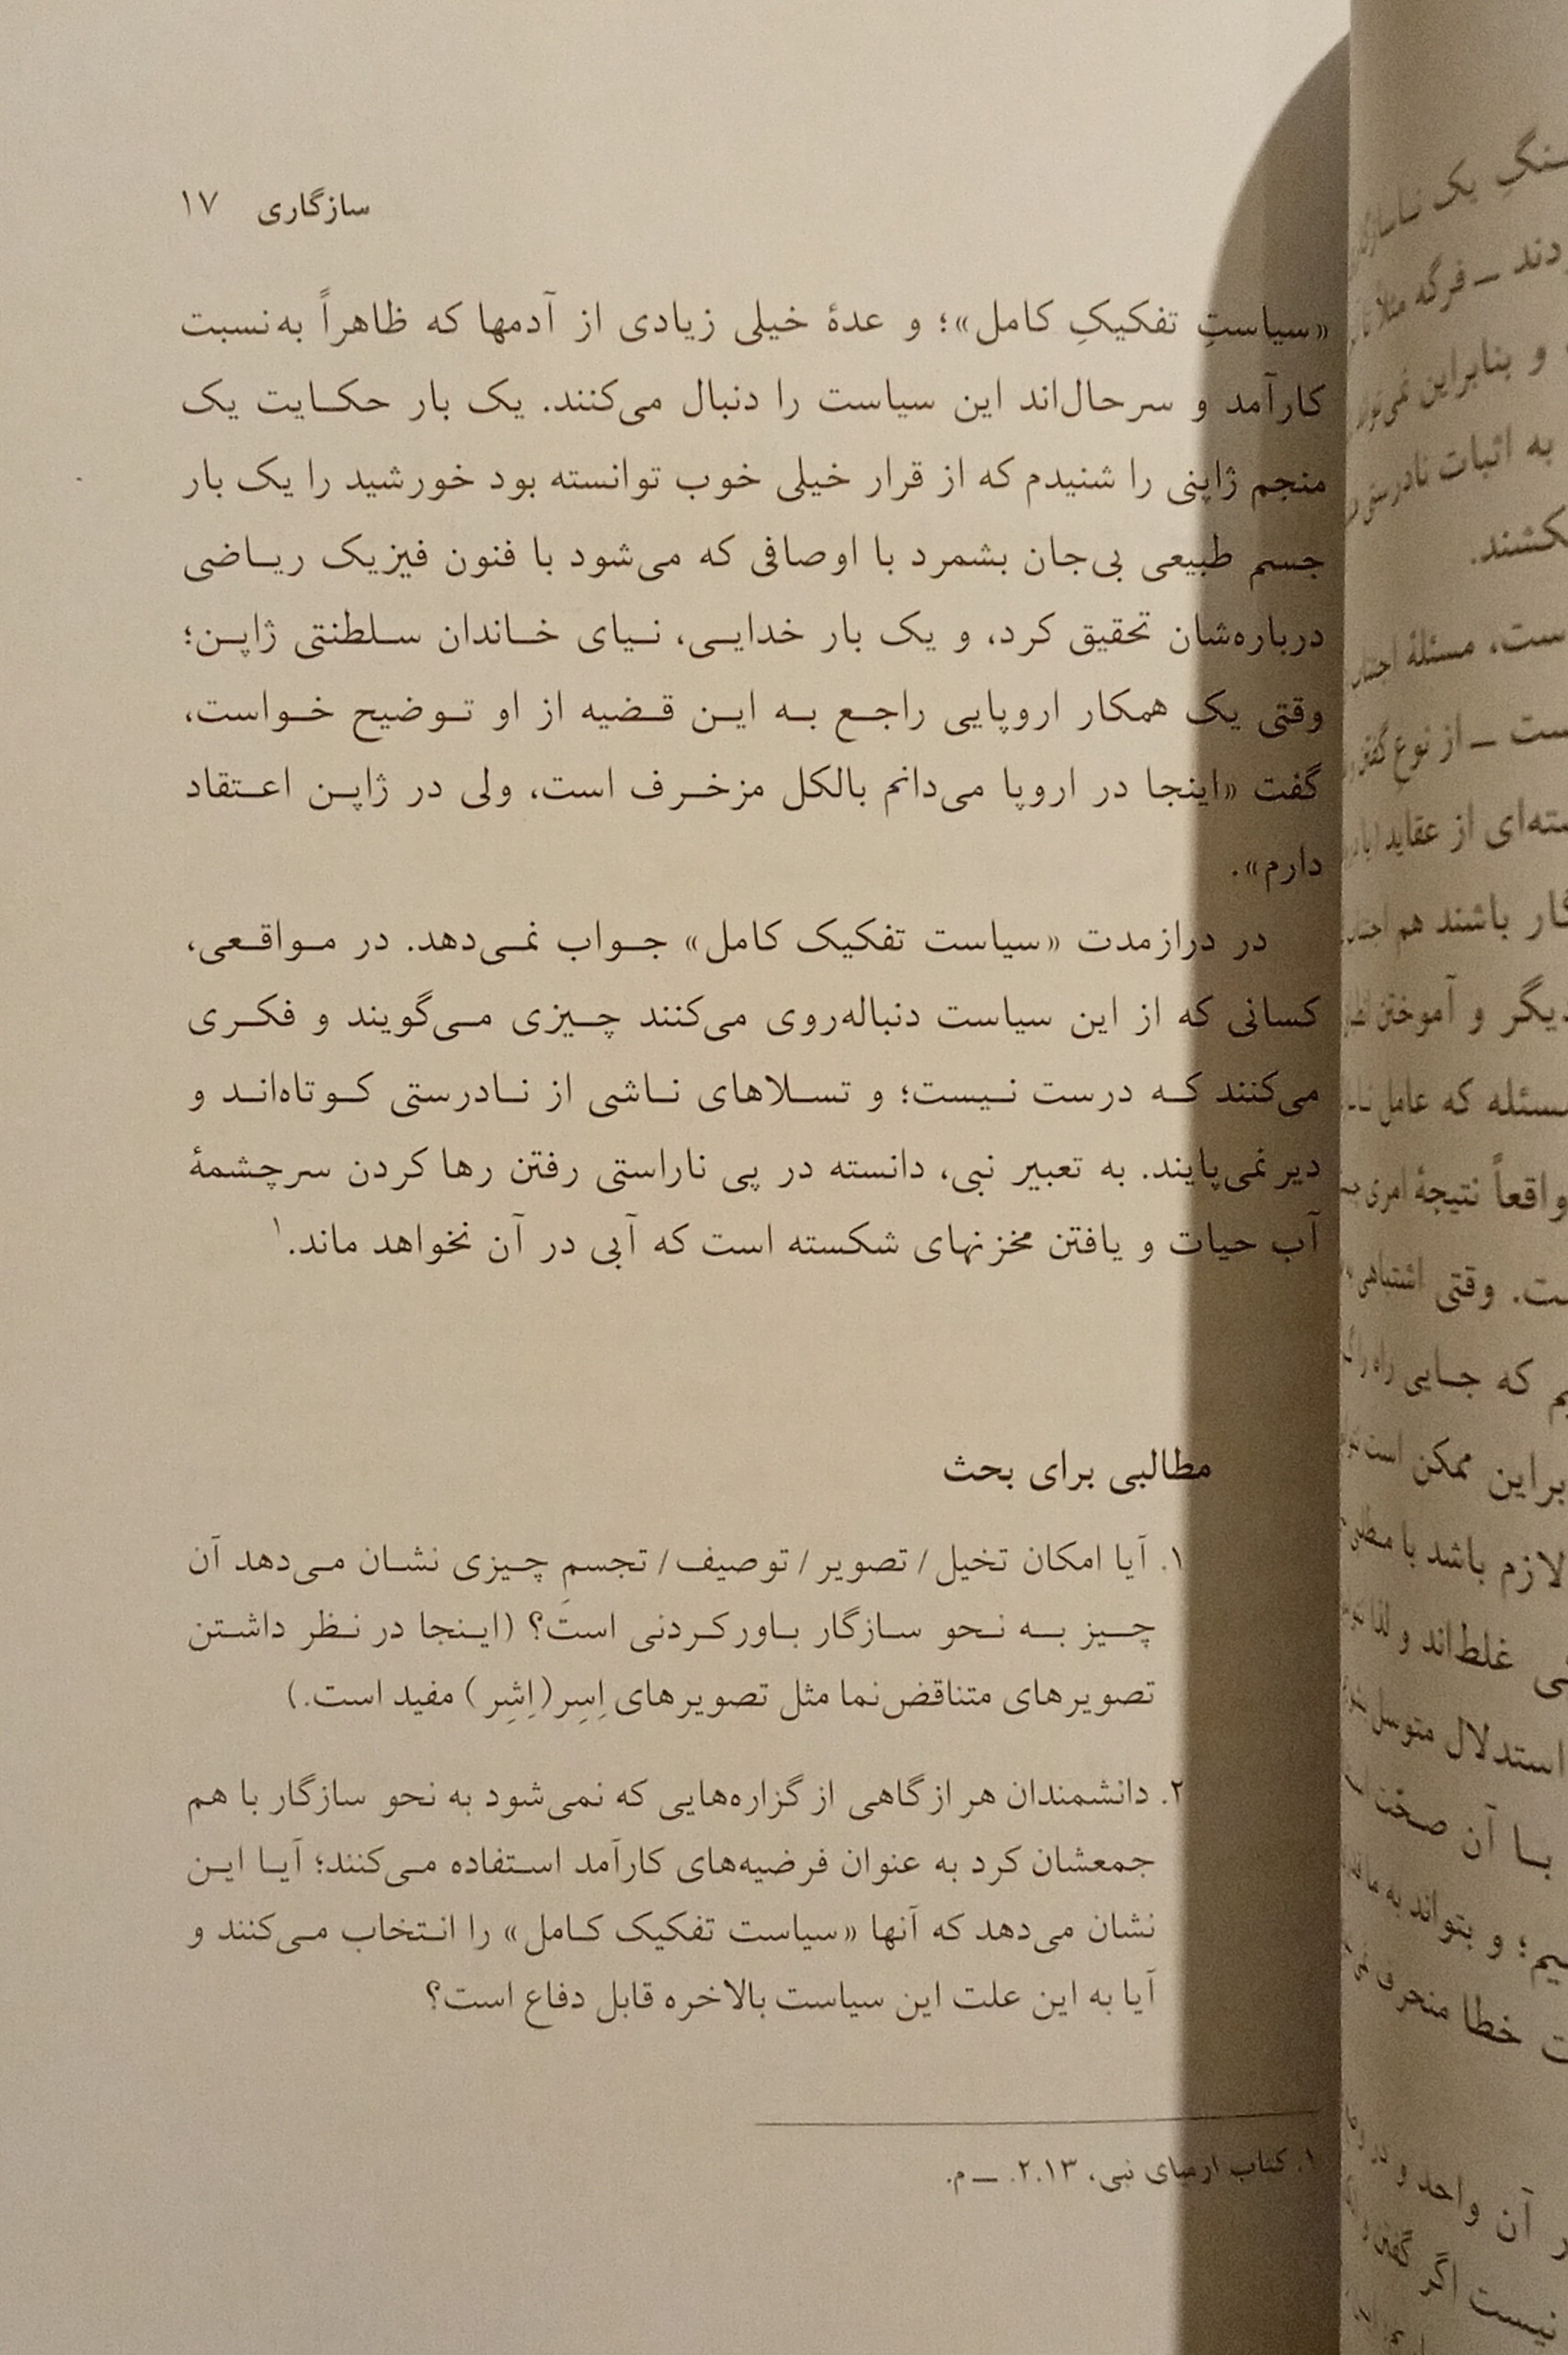 سازگاری ۱۷
«سیاستِ تفکیکِ کامل»؛ و عدهٔ خیلی زیادی از آدمها که ظاهراً به‌نسبت
کارآمد و سرحال‌اند این سیاست را دنبال می‌کنند. یک بار حکایت یک
منجم ژاپنی را شنیدم که از قرار خیلی خوب توانسته بود خورشید را یک بار
جسم طبیعی بی‌جان بشمرد با اوصافی که می‌شود با فنون فیزیک ریاضی
درباره‌شان تحقیق کرد، و یک بار خدایی، نیای خاندان سلطنتی ژاپن؛
وقتی یک همکار اروپایی راجع به این قضیه از او توضیح خواست،
گفت «اینجا در اروپا می‌دانم بالکل مزخرف است، ولی در ژاپن اعتقاد
دارم».
در درازمدت «سیاست تفکیک کامل» جواب نمی‌دهد. در مواقعی،
کسانی که از این سیاست دنباله‌روی می‌کنند چیزی می‌گویند و فکری
می‌کنند که درست نیست؛ و تسلاهای ناشی از نادرستی کوتاه‌اند و
دیر نمی‌پایند. به تعبیر نبی، دانسته در پی ناراستی رفتن رها کردن سرچشمهٔ
آب حیات و یافتن مخزنهای شکسته است که آبی در آن نخواهد ماند.۱
مطالبی برای بحث
۱. آیا امکان تخیل/ تصویر/ توصیف/ تجسمِ چیزی نشان می‌دهد آن
چیز به نحو سازگار باورکردنی است؟ (اینجا در نظر داشتن
تصویرهای متناقض‌نما مثل تصویرهای اِسِر(اِشِر) مفید است.)
۲. دانشمندان هر ازگاهی از گزاره‌هایی که نمی‌شود به نحو سازگار با هم
جمعشان کرد به عنوان فرضیه‌های کارآمد استفاده می‌کنند؛ آیا این
نشان می‌دهد که آنها «سیاست تفکیک کامل» را انتخاب می‌کنند و
آیا به این علت این سیاست بالاخره قابل دفاع است؟
۱. کتاب ارمیای نبی، ۲.۱۳. ــ م.
دند ــ فرگه مثلا
و بنابراین نمی‌تواند
به اثبات نادرستی
است، مسئلهٔ
ست ــ از نوعِ گفتن
از عقاید
باشند هم
دیگر و آموختن
مسئله که عامل
واقعاً نتیجهٔ امری
ست. وقتی اشتباهی
که جایی راه را
براین ممکن است
لازم باشد با
غلط‌اند و لذا
استدلال متوسل
با آن صحّت
؛ و بتواند به ما
خطا منحرف
آن واحد و در
نیست اگر گفتن